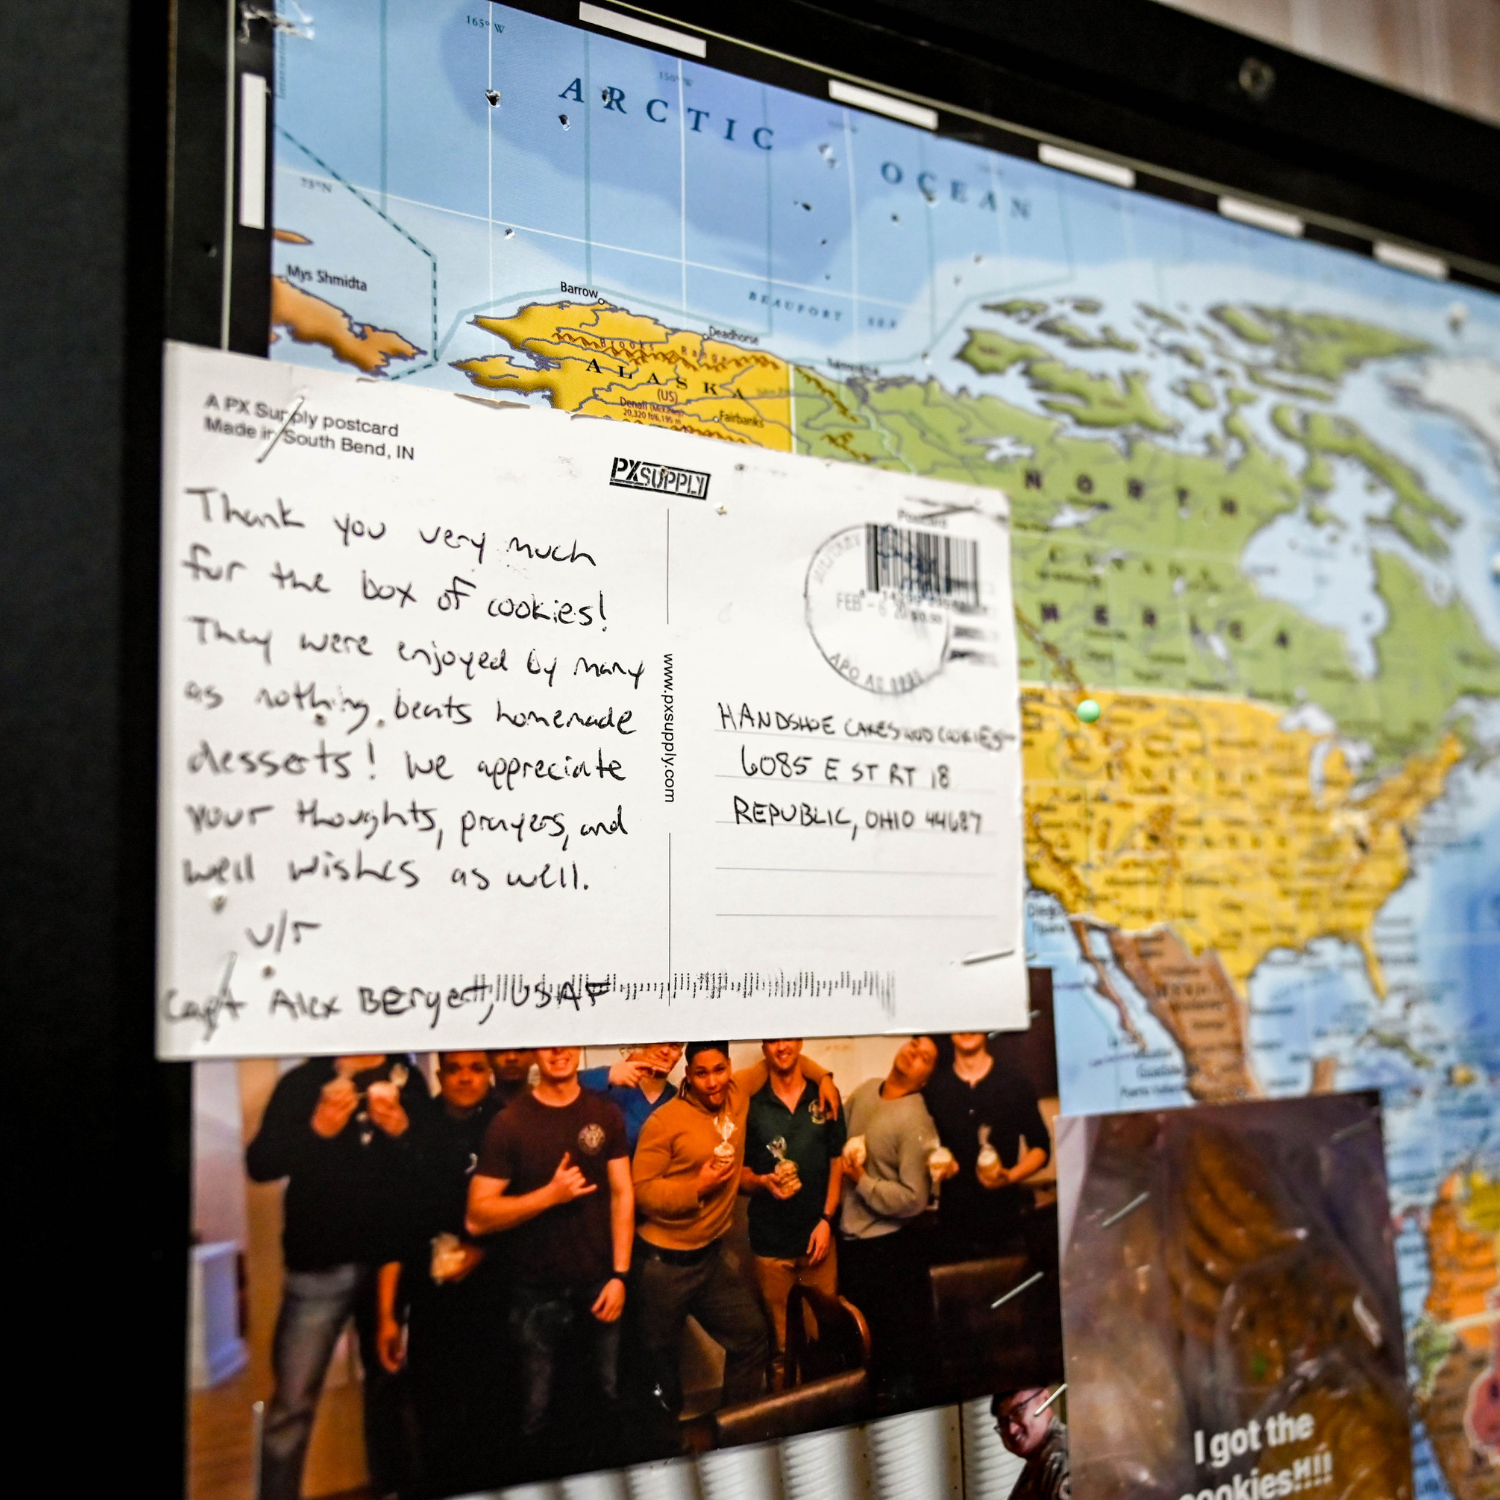 165° W
150° W
ARCTIC
OCEAN
75°N
Mys Shmidta
Barrow
BEAUFORT SEA
Deadhorse
BROOKS RANGE
ALASKA
(US)
Fairbanks
NORTH
AMERICA
CANADA
UNITED
STATES
A PX Supply postcard
Made in South Bend, IN
PXSUPPLY
Postcard
MILITARY
FEB - 6 20
APO AE
Thank you very much
for the box of cookies!
They were enjoyed by many
as nothing beats homemade
desserts! We appreciate
your thoughts, prayers, and
well wishes as well.
v/r
Capt Alex Bergett, USAF
www.pxsupply.com
HANDSHOE CAKES AND COOKIES
6085 E ST RT 18
REPUBLIC, OHIO 44687
I got the
cookies!!!!